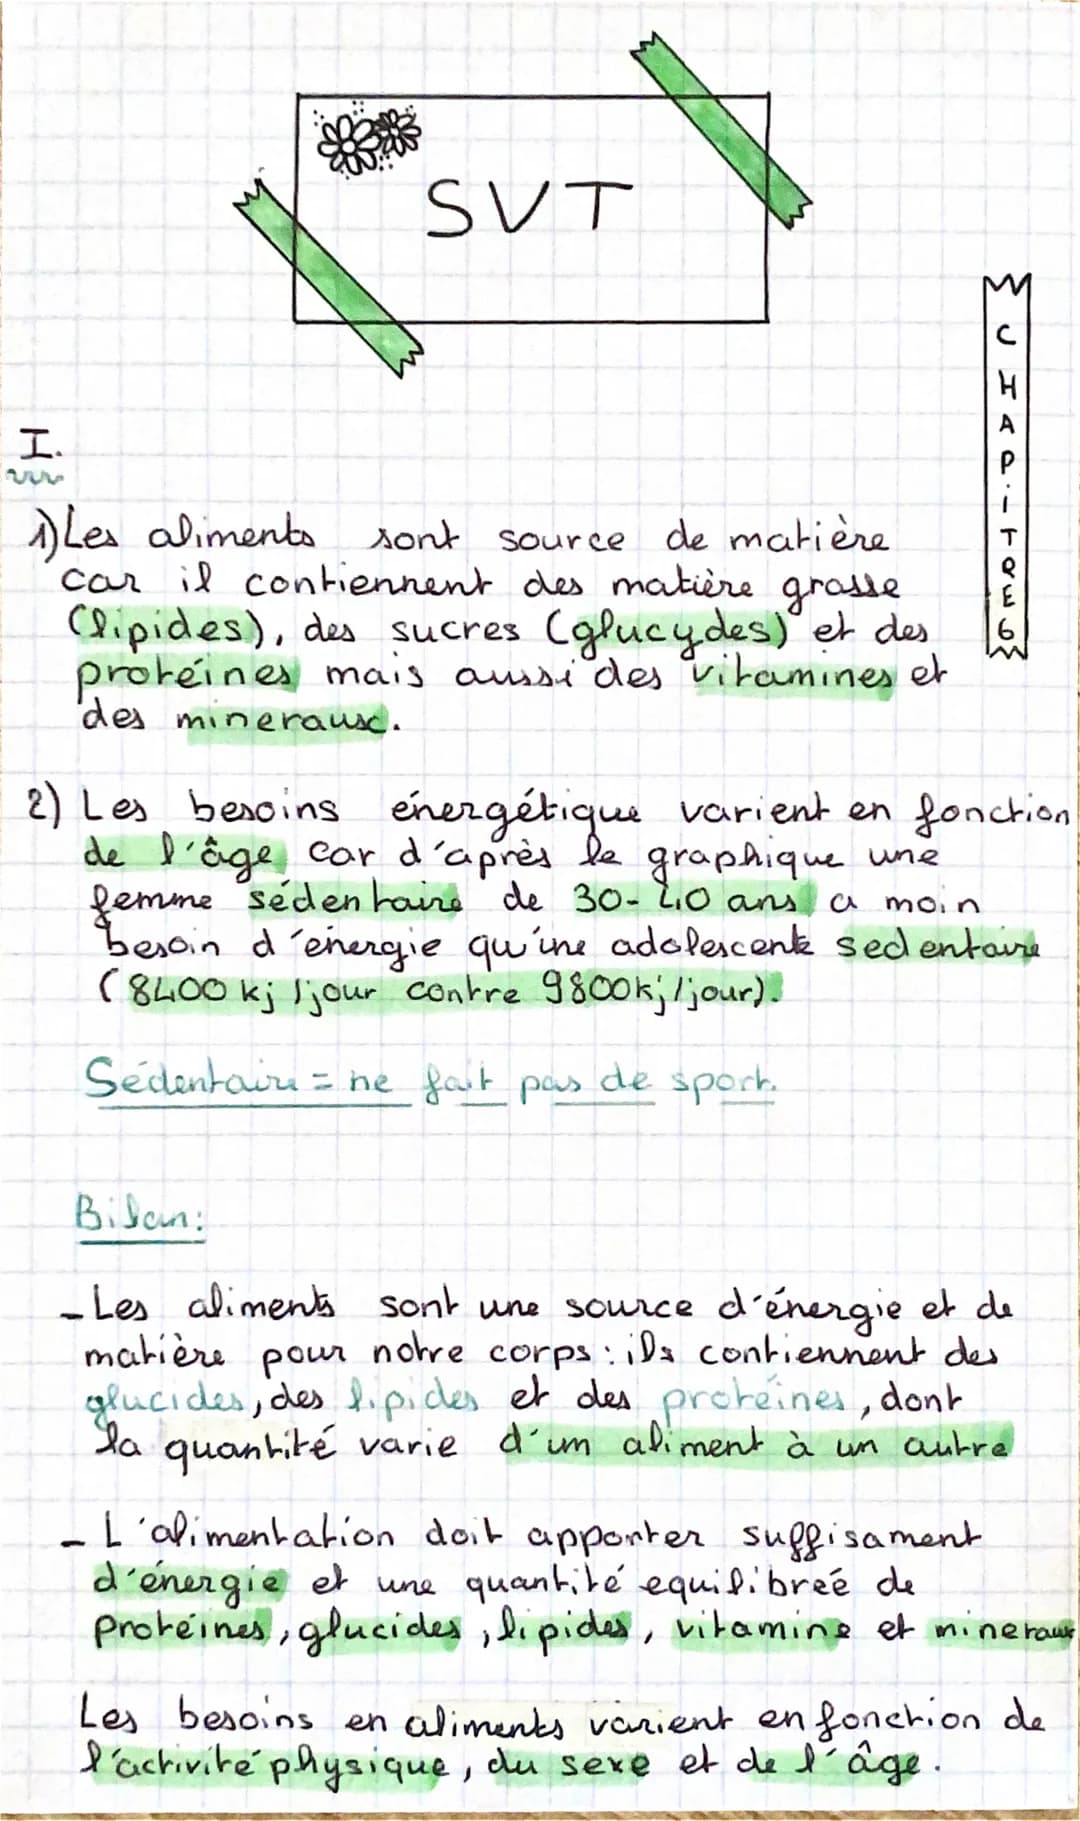 SVT
CHAPITRE 6
I.
1) Les aliments sont source de matière
car il contiennent des matière grasse
(lipides), des sucres (glucydes) et des
protéines mais aussi des vitamines et
des mineraux.
2) Les besoins énergétique varient en fonction
de l'âge car d'après le graphique une
femme sédentaire de 30-40 ans a moin
besoin d'énergie qu'ine adolescente sedentaire
(8400 kj /jour contre 9800kj/jour).
Sédentaire = ne fait pas de sport.
Bilan:
- Les aliments sont une source d'énergie et de
matière pour notre corps : ils contiennent des
glucides, des lipides et des protéines, dont
la quantité varie d'un aliment à un autre
- L'alimentation doit apporter suffisament
d'énergie et une quantité equilibreé de
Protéines, glucides, lipides, vitamine et mineraux
Les besoins en aliments varient en fonction de
l'activité physique, du sexe et de l'âge.